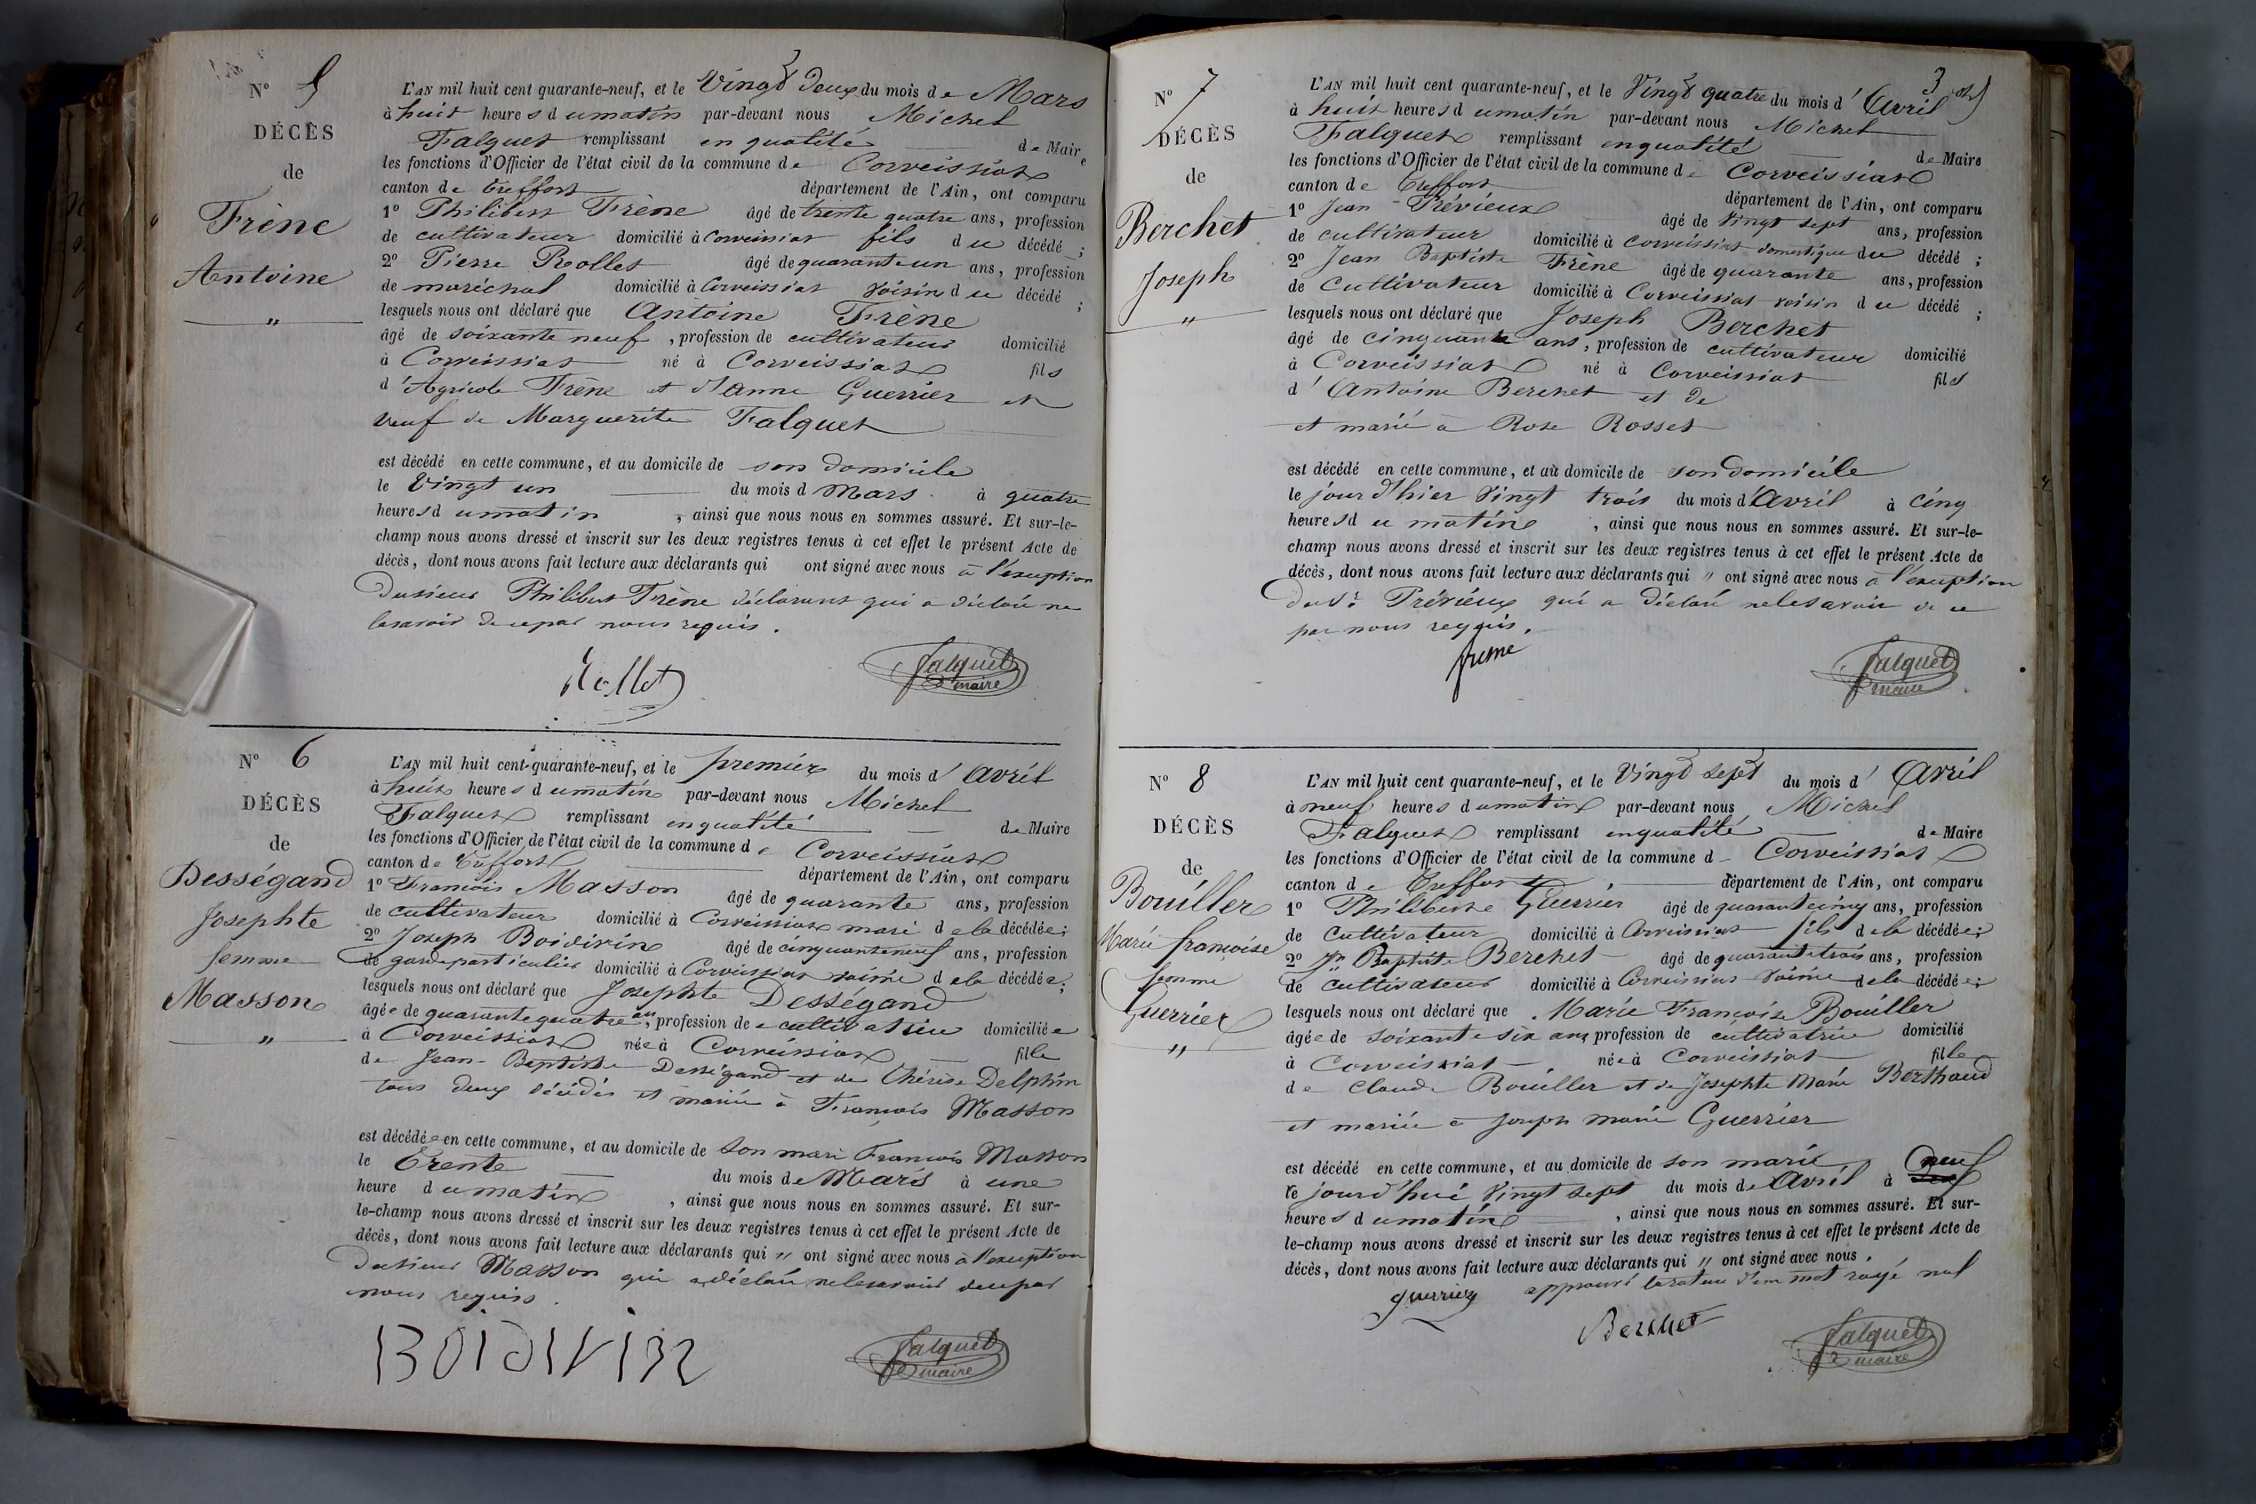 Nº 5
DÉCÈS
de
Frène
Antoine
"
L'AN mil huit cent quarante-neuf, et le Vingt Deux du mois de Mars
à huit heures du matin par-devant nous Michel
Falquet remplissant en qualité de Maire
les fonctions d'Officier de l'état civil de la commune de Corveissiat
canton de Treffort département de l'Ain, ont comparu
1º Philibert Frène âgé de trente quatre ans, profession
de cultivateur domicilié à Corveissiat fils du décédé ;
2º Pierre Rollet âgé de quarante un ans, profession
de maréchal domicilié à Corveissiat voisin du décédé ;
lesquels nous ont déclaré que Antoine Frene
âgé de soixante neuf , profession de cultivateur domicilié
à Corveissiat né à Corveissiat fils
d'Agricole Frène et d'anne Guerrier et
veuf de Marguerite Falquet
est décédé en cette commune, et au domicile de son domicile
le Vingt un du mois d Mars à quatre
heures du matin , ainsi que nous nous en sommes assuré. Et sur-le-
champ nous avons dressé et inscrit sur les deux registres tenus à cet effet le présent Acte de
décès, dont nous avons fait lecture aux déclarants qui ont signé avec nous à l'exeption
Dusieur Philibert Frène déclarant qui a déclaré ne
lesavoir de ce par nous requis.
Rollet
falquet
maire
Nº 6
DÉCÈS
de
Dességand
Josephte
femme
Masson
"
L'AN mil huit cent quarante-neuf, et le premier du mois d'avril
à huit heures du matin par-devant nous Michel
Falquet remplissant en qualité de Maire
les fonctions d'Officier de l'état civil de la commune de Corveissiat
canton de Treffort département de l'Ain, ont comparu
1º François Masson âgé de quarante ans, profession
de cultivateur domicilié à Corveissiat mari de la décédée ;
2º Joseph Boidivin âgé de cinquanteneuf ans, profession
de garde particulier domicilié à Corveissiat voisin de la décédée ;
lesquels nous ont déclaré que Josephte Dességand
âgée de quarante quatre ans, profession de cultivatrice domiciliée
à Corveissiat née à Corveissiat fille
de Jean-Baptiste Dességand et de Thérèse Delphin
tous deux décédés et mariée à François Masson
est décédée en cette commune, et au domicile de son mari François Masson
le Trente du mois de Mars à une
heure du matin , ainsi que nous nous en sommes assuré. Et sur-
le-champ nous avons dressé et inscrit sur les deux registres tenus à cet effet le présent Acte de
décès, dont nous avons fait lecture aux déclarants qui " ont signé avec nous à l'exeption
dusieur Masson qui a déclaré nelesavoir deupar
nous requis.
BOIDIVIN
falquet
maire
3
Nº 7
DÉCÈS
de
Berchet
Joseph
"
L'AN mil huit cent quarante-neuf, et le Vingt quatre du mois d'Avril
à huit heures du matin par-devant nous Michel
Falquet remplissant enqualité de Maire
les fonctions d'Officier de l'état civil de la commune de Corveissiat
canton de Treffort département de l'Ain, ont comparu
1º Jean Prévieux âgé de Vingt sept ans, profession
de cultivateur domicilié à Corveissiat domestique du décédé ;
2º Jean Baptiste Frène âgé de quarante ans, profession
de Cultivateur domicilié à Corveissiat voisin du décédé ;
lesquels nous ont déclaré que Joseph Berchet
âgé de cinquante ans, profession de cultivateur domicilié
à Corveissiat né à Corveissiat fils
d'Antoine Berchet et de
et marié à Rose Rosset
est décédé en cette commune, et au domicile de son domicile
le jour d'hier Vingt trois du mois d'Avril à cinq
heures du matin , ainsi que nous nous en sommes assuré. Et sur-le-
champ nous avons dressé et inscrit sur les deux registres tenus à cet effet le présent Acte de
décès, dont nous avons fait lecture aux déclarants qui " ont signé avec nous à l'exeption
dusr Prévieux qui a déclaré nelesavoir de ce
par nous requis.
frene
falquet
maire
Nº 8
DÉCÈS
de
Bouiller
Marie françoise
femme
Guerrier
"
L'AN mil huit cent quarante-neuf, et le Vingt sept du mois d'Avril
à neuf heures du matin par-devant nous Michel
Falquet remplissant enqualité de Maire
les fonctions d'Officier de l'état civil de la commune d Corveissiat
canton de Treffort département de l'Ain, ont comparu
1º Philiberte Guerrier âgé de quarantecinq ans, profession
de Cultivateur domicilié à Corveissiat fils de la décédée ;
2º Jn Baptiste Berchet âgé de quarantetrois ans, profession
de cultivateur domicilié à Corveissiat voisin de la décédée ;
lesquels nous ont déclaré que Marie Françoise Bouiller
âgée de soixante six ans profession de cultivatrice domicilié
à Corveissiat née à Corveissiat fille
de Claude Bouiller et de Josephte Marie Berthaud
et mariée à Joseph marie Guerrier
est décédé en cette commune, et au domicile de son marie neuf
le jourd'hui Vingt sept du mois de Avril à
heures du matin , ainsi que nous nous en sommes assuré. Et sur-
le-champ nous avons dressé et inscrit sur les deux registres tenus à cet effet le présent Acte de
décès, dont nous avons fait lecture aux déclarants qui " ont signé avec nous .
approuvé la rature d'un mot rayé nul
guerrier
Berchet
falquet
maire